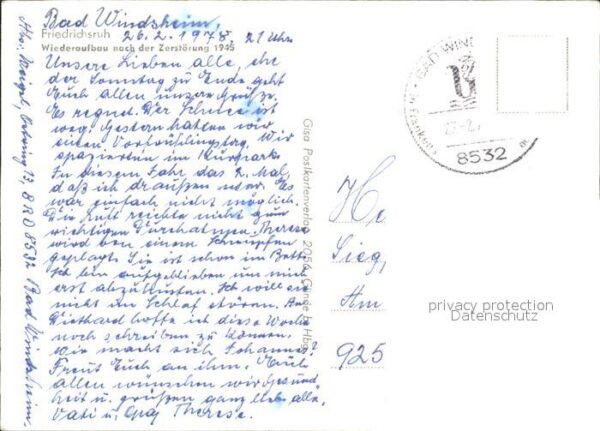 Bad Windsheim,
Friedrichsruh
26.2.1978, 21 Uhr
Wiederaufbau nach der Zerstörung 1945
Unsere Lieben alle, ehe
der Sonntag zu Ende geht
Euch allen unsere Grüße.
Es regnet. Der Schnee ist
weg. Gestern hatten wir
einen Vorfrühlingstag. Wir
spazierten im Kurpark.
In diesem Jahr das 2. Mal,
daß ich draußen war. Es
war einfach nicht möglich.
Die Luft reichte nicht zum
richtigen Durchatmen. Therese
wird von einem Schnupfen
geplagt. Sie ist schon im Bett.
Ich bin aufgeblieben um mich
erst abzuhusten. Ich will sie
nicht im Schlaf stören. An
Diethard hoffe ich diese Woche
noch schreiben zu können.
Wie macht sich Johannes?
Freut Euch an ihm. Euch
allen wünschen wir Gesund
heit u. grüßen ganz lieb alle.
Vati u. Opa Therese.
Abs: Weigel, 13, BRD 8532 Bad Windsheim.
Gisa Postkartenverlag 2056 Glinde b. Hbg.
BAD WIND
8532
He
Sieg,
Am
925
privacy protection
Datenschutz